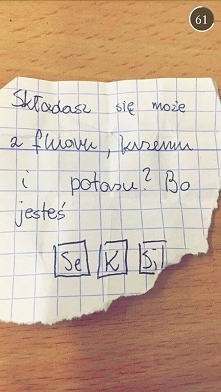 61
Składasz się może
z fluoru, krzemu
i potasu? Bo
jesteś
Se K Si